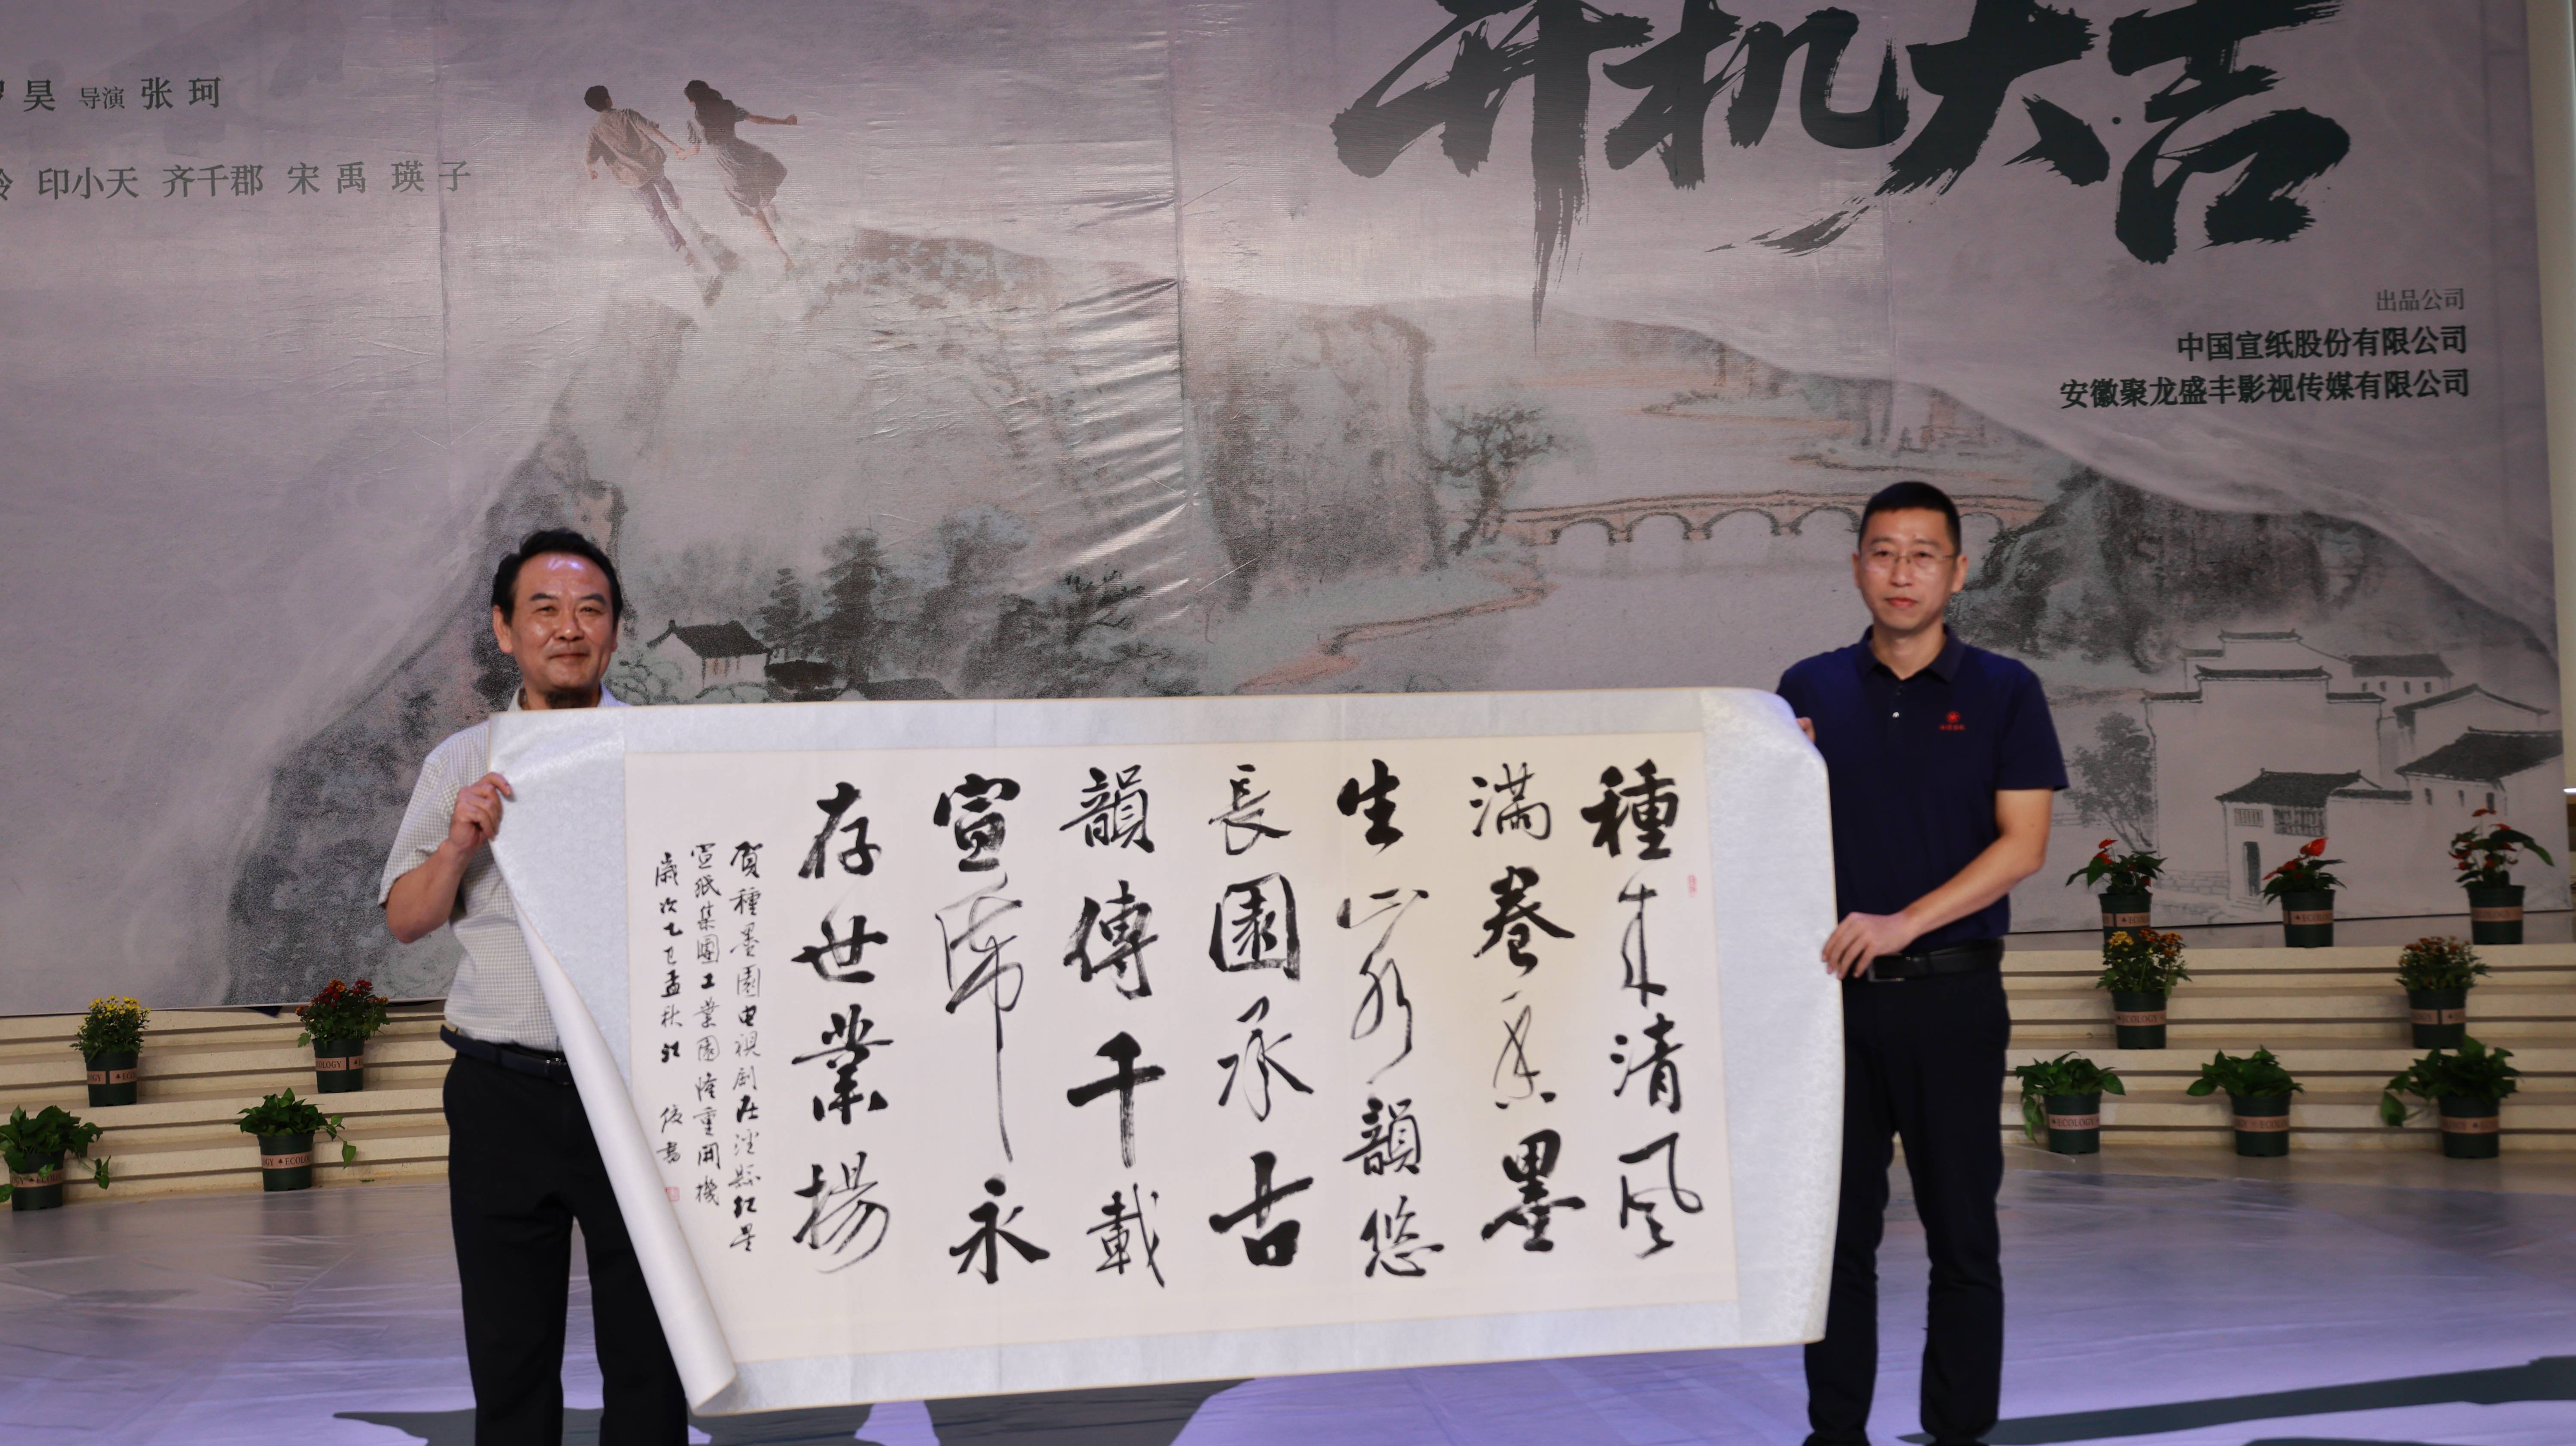 昊 导演 张珂
印小天 齐千郡 宋禹 瑛子
开机大吉
出品公司
中国宣纸股份有限公司
安徽聚龙盛丰影视传媒有限公司
種来清風
滿卷香墨
生山水韻悠
長園承古
韻傳千載
宣紙永
存世業揚
賀種墨園电視剧在涇縣红星
宣紙集團工業園隆重開機
歲次乙巳孟秋 書
ECOLOGY
ECOLOGY
ECOLOGY
ECOLOGY
ECOLOGY
ECOLOGY